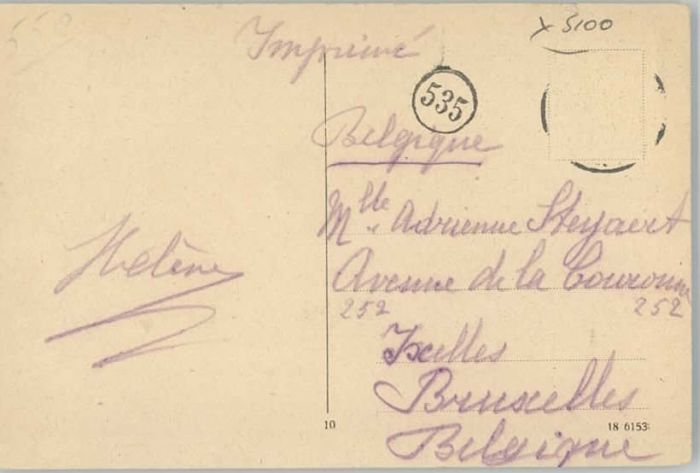 x 5100
Imprimé
535
Belgique
Mlle Adrienne Steyaert
Avenue de la Couronne
252 252
Ixelles
Bruxelles
Belgique
Hélène
10
18 6153